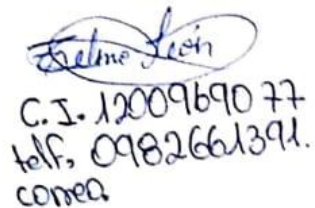 Zelmo León
C.I. 1200969077
telf, 0982661391.
correo